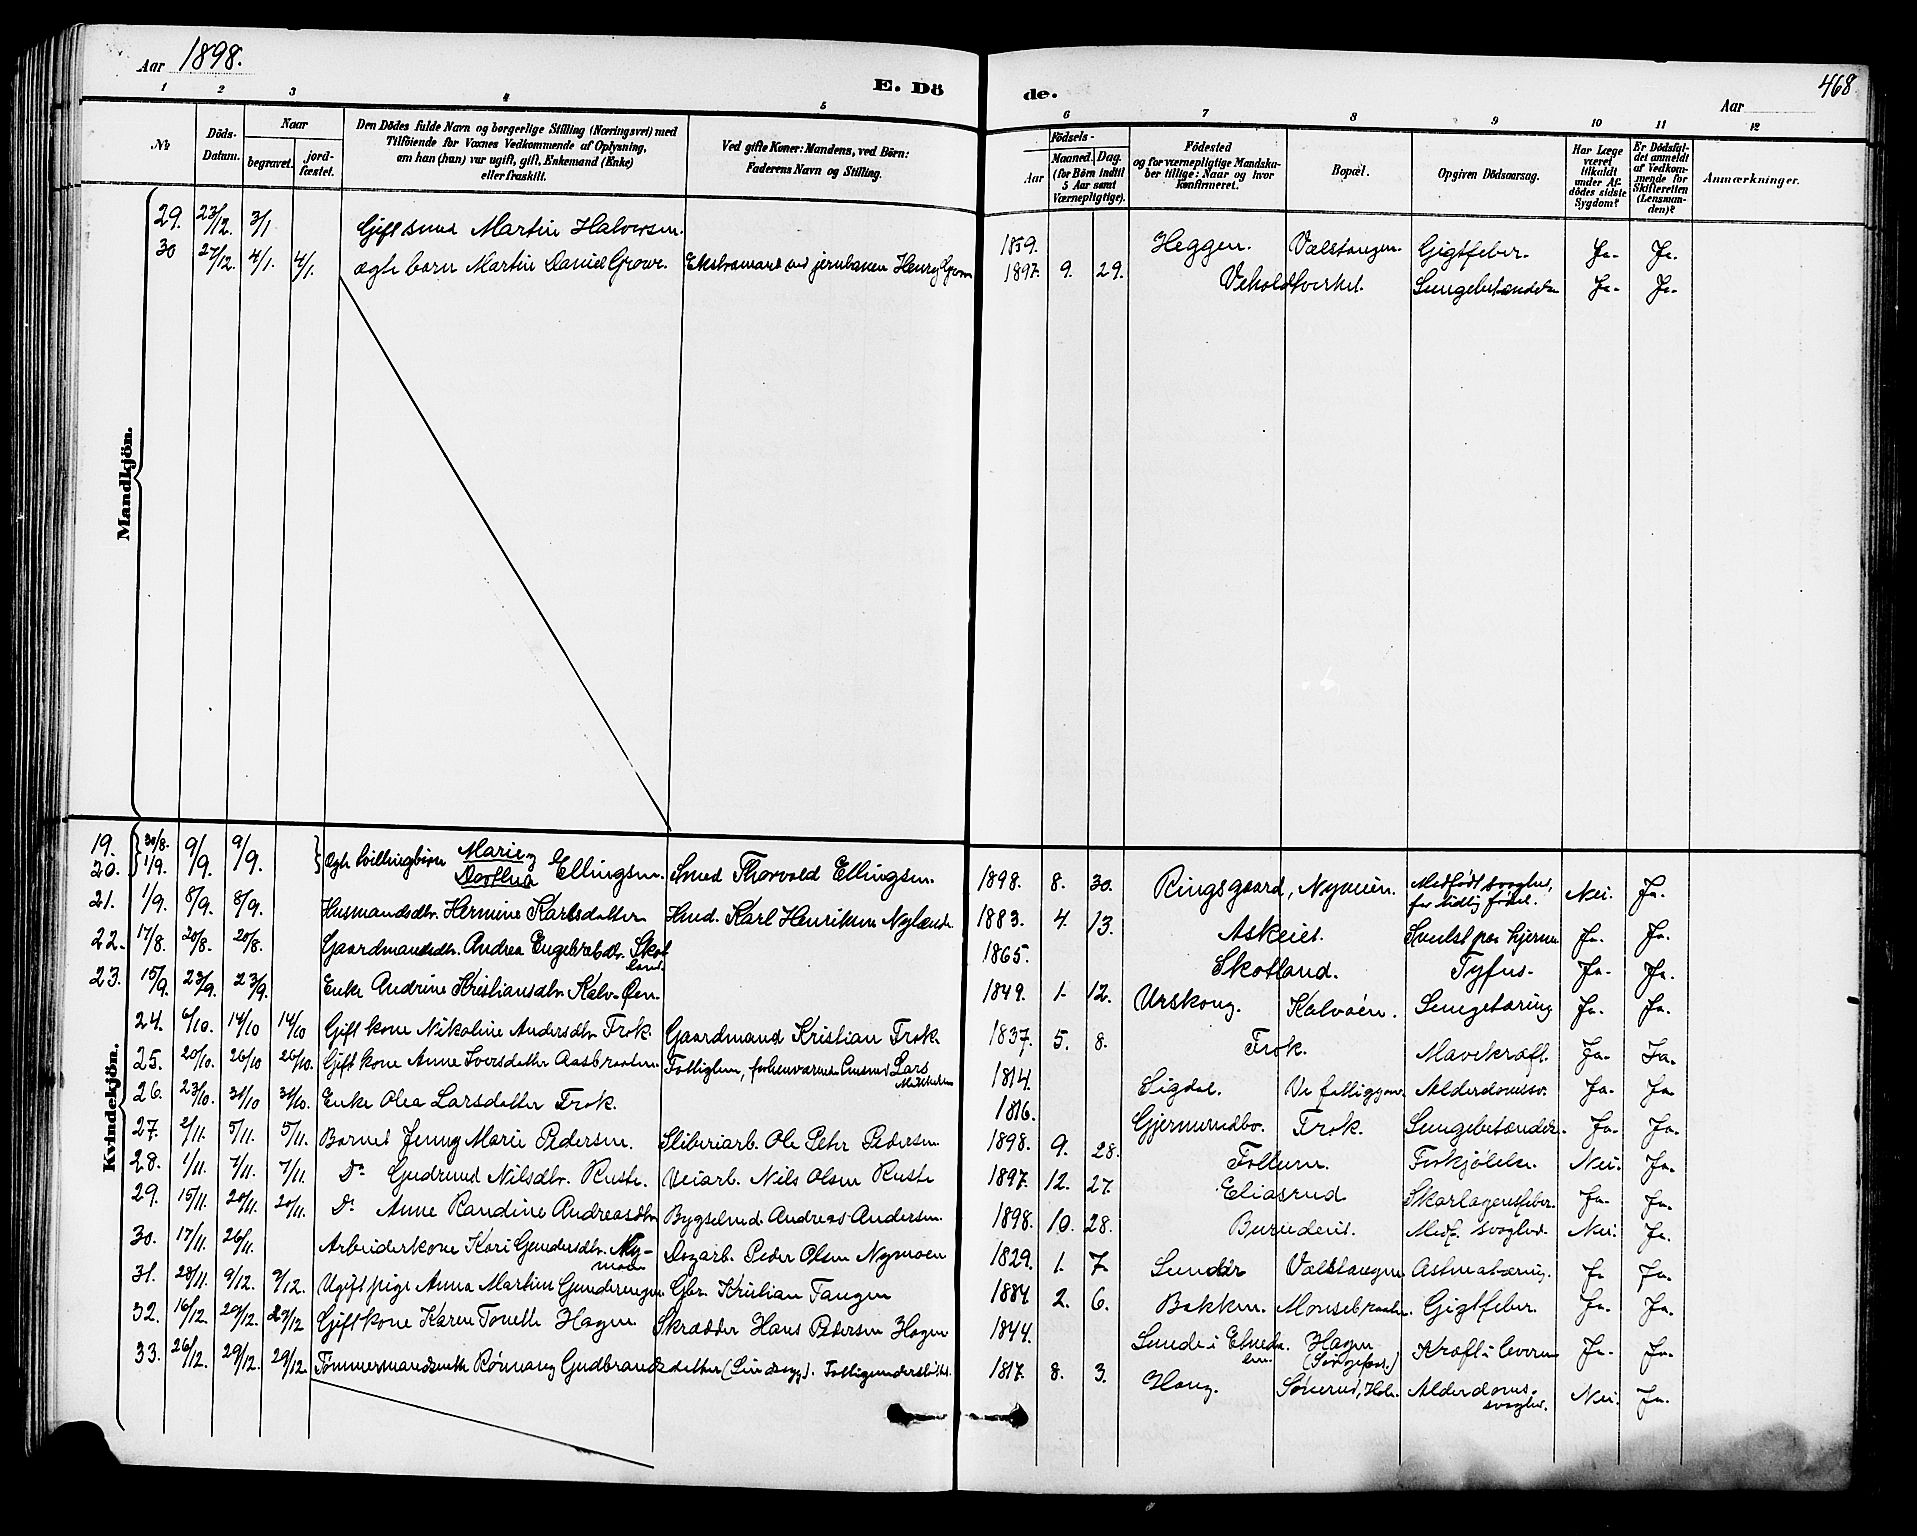 Aar 1898.
E. Döde.
468
Aar
1 2 3 4 5 6 7 8 9 10 11 12
№
Döds-Datum.
Naar
begravet.
jordfæstet.
Den Dödes fulde Navn og borgerlige Stilling (Næringsvei) med
Tilföiende for Voxnes Vedkommende af Oplysning,
om han (hun) var ugift, gift, Enkemand (Enke)
eller fraskilt.
Ved gifte Koner: Mandens, ved Börn:
Faderens Navn og Stilling.
Födsels-
Aar
Maaned. Dag.
(for Börn indtil
5 Aar samt
Værnepligtige).
Födested
og for værnepligtige Mandskaber tillige: Naar og hvor
konfirmeret.
Bopæl.
Opgiven Dödsaarsag.
Har Læge
været
tilkaldt
under Afdödes sidste
Sygdom?
Er Dödsfaldet anmeldt
af Vedkommende for
Skifteretten
(Lensmanden)?
Anmærkninger.
Mandkjön.
29. 23/12. 3/1 Gift smed Martin Halvorsen. 1859. Heggen. Vælstangen. Gigtfeber. Ja. Ja.
30 27/12. 4/1. 4/1. ægte barn Martin Daniel Grove. Ekstramand ved jernbanen Henry Grove 1897. 9. 29. Veholdtverket. Lungebetændelse Ja. Ja.
Kvindekjön.
19. 30/8. 9/9. 9/9.
20. 1/9. ægte tvillingbörn Marie og Dorthea Ellingsen. Smed Thorvald Ellingsen. 1898. 8. 30. Ringsgaard, Nymoen. Medfödt svaghed, for tidlig födsel. Nei. Ja.
21. 1/9. 8/9. 8/9. Husmandsdtr. Hermine Karlsdatter Hmd. Karl Henriksen 1883. 4. 13. Askeiet. Svulst paa hjernen Ja. Ja.
22. 17/8. 20/8. 20/8. Gaardmandsdtr. Andrea Engebretsdtr. Skotland. 1865. Skotland. Tyfus. Ja. Ja.
23. 15/9. 23/9. 23/9. Enke Andrine Kristiansdtr. Kalv-Øen. 1849. 1. 12. Urskoug. Kalvøen. Lungetæring Ja. Ja.
24. 6/10. 14/10 14/10 Gift kone Nikoline Andersdtr. Frok. Gaardmand Kristian Frok. 1837. 5. 8. Frok. Mavekræft. Ja. Ja.
25. 20/10. 26/10 26/10. Gift kone Anne Iversdatter Aasbraaten. Fattiglem, forhenværende Lars 1814. Sigdal. Alderdomssv. Ja. Ja.
26. 23/10. 31/10 31/10. Enke Olea Larsdatter Frok. 1816. Gjermundbo. Frok. Lungebetændelse. Ja. Ja.
27. 2/11. 5/11. 5/11. Barnet Jenny Marie Pedersen. Sliberiarb. Ole Peter Pedersen 1898. 9. 28. Follum. Forkjölelse. Nei. Ja.
28. 1/11. 7/11. 7/11. Do Gudrund Nilsdtr. Ruste. Veiarb. Nils Olsen Ruste 1897. 12. 27. Eliasrud Skarlagensfeber. Ja. Ja.
29. 15/11. 20/11. 20/11. Do Anne Randine Andreasdtr. Bygselmd. Andreas Andersen. 1898. 10. 28. Medf. svaghed. Nei. Ja.
30. 17/11. 26/11. Arbeiderkone Kari Gundersdtr. Nymoen Dagarb. Peder Olsen Nymoen 1829. 1. 7. Vælstangen Ja Ja.
31. 28/11. 9/12. 9/12. Ugift pige Anna Martine Gbr. Kristian Tangen 1884 2. 6. Bakken. Monsebraaten. Gigtfeber. Ja. Ja.
32. 16/12. 29/12. 29/12 Gift kone Karen Tonette Hagen Skrædder Hans Pedersen Hagen 1844. Hagen Kræft i leveren Ja. Ja.
33. 26/12. 29/12. 29/12. Tömmermandsenke Rönnaug Gudbrandsdatter 1817. 8. 3. Haug. Sönerud, Hole. Alderdoms-svaghed. Nei. Ja.